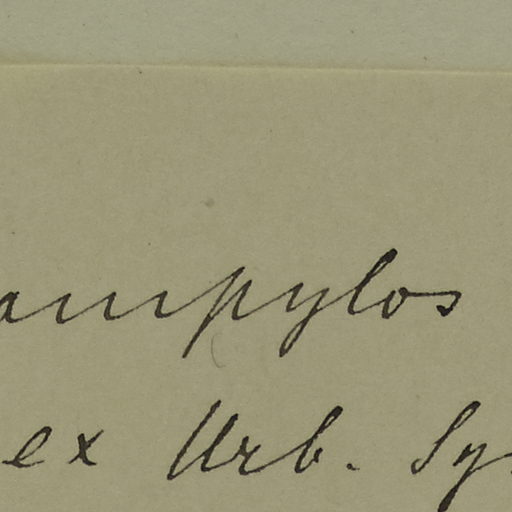 ampylos
ex Urb. Sy